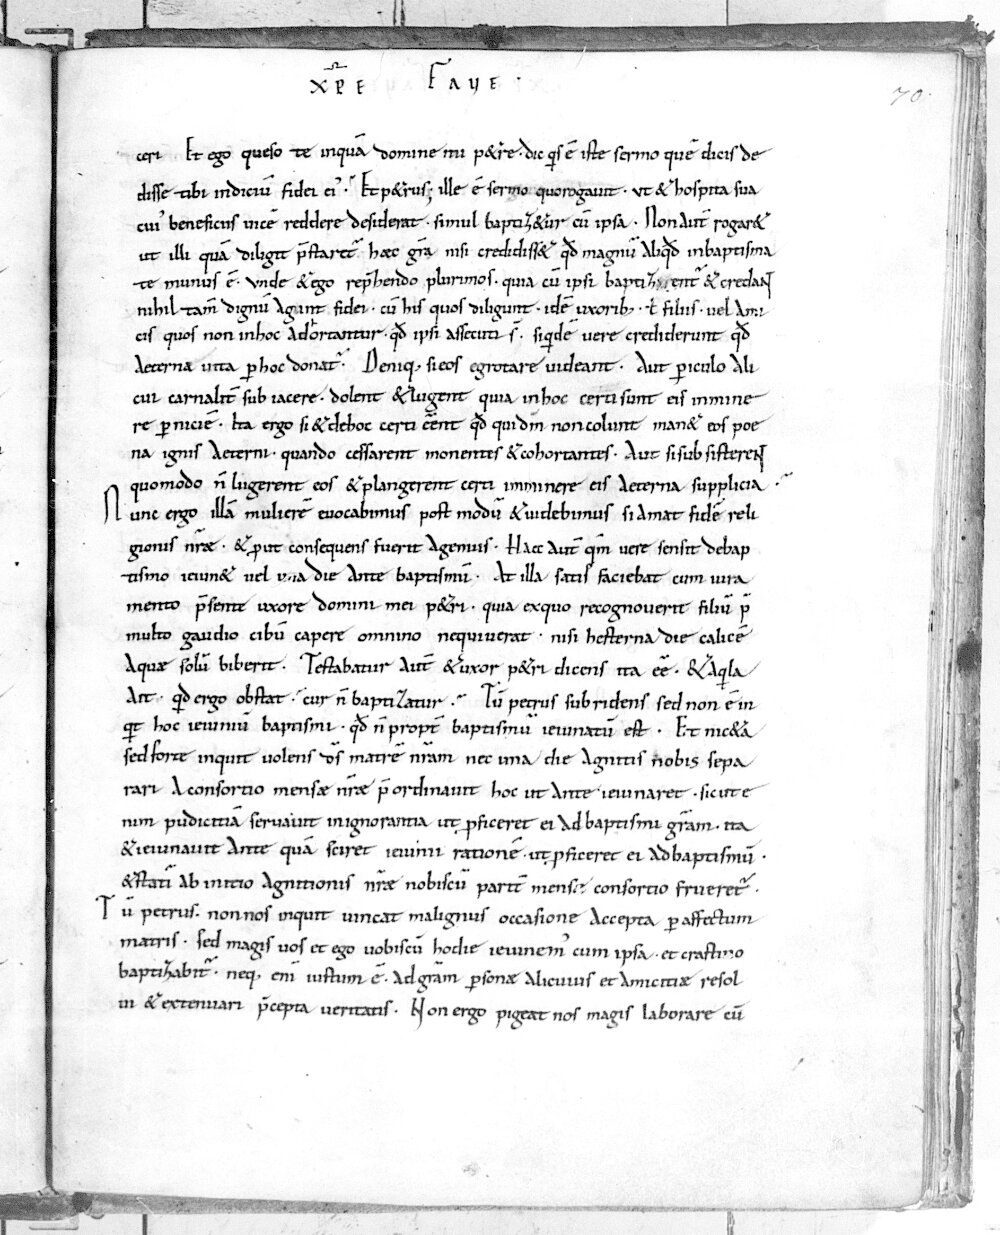 XP̄E FAVE·
70·
ceri Et ego queso te inquā domine mi petre· dic q̄s ē iste sermo quē dicis de
disse tibi indiciū fidei ei᾽· Et petrus; ille ē sermo quo rogauit· ut & hospita sua
cui᾽ beneficiis uicē reddere desiderat· simul baptiz&ur cū ipsa· Non aut̄ rogar&
ut illi quā diligit p̄staret᷑ haec grā nisi credidiss& qd̄ magnū aliqd̄ in baptisma
te munus ē· Vnde & ego rep̄hendo plurimos· quia cū ipsi baptizent᷑ & credaNT
nihil tam̄ dignū agunt fidei· cū his quos diligunt· idē uxorib; t̄ filiis· uel ami
cis quos non in hoc adortantur· qd̄ ipsi assecuti s̄· siqdē uere crediderunt qd̄
aeterna uita p̱ hoc donat᷑· Deniq; si eos egrotare uideant· Aut p̱iculo ali
cui carnalit̄ subiacere· dolent & lugent quia in hoc certi sunt eis inmine
re p̱niciē· Ita ergo si & de hoc certi eēent qd̄ qui dm̄ non colunt man& eos poe
na ignis aeterni· quando cessarent monentes & cohortantes· Aut si subsistereNT
quomodo n̄ lugerent eos & plangerent certi imminere eis aeterna supplicia·
Nunc ergo illā mulierē euocabimus postmodū & uidebimus si amat fidē reli
gionis nr̄ae· & put consequens fuerit agemus· Haec aut̄ qm̄ uere sensit de bap
tismo ieiun& uel una die ante baptismū· At illa satis faciebat cum iura
mento p̄sente uxore domini mei petri· quia ex quo recognouerit filiū p̄
multo gaudio cibū capere omnino nequiuerat· nisi hesterna die calicē
aquae solū biberit· Testabatur aut̄ & uxor petri dicens ita eē· & aqla
ait· qd̄ ergo obstat· cur n̄ baptizatur· Tū petrus subridens sed non ē in
qt hoc ieiuniū baptismi· qd̄ n̄ propt̄ baptismū ieiunatū est· Et nic&a
sed forte inquit uolens d̄s matrē nr̄am nec una die agnitis nobis sepa
rari a consortio mensae nr̄ae p̄ordinauit hoc ut ante ieiunaret· sicut e
nim pudicitiā seruauit in ignorantia ut p̱ficeret ei ad baptismi grām· ita
& ieiunauit ante quā sciret ieiunii rationē· ut p̱ficeret ei ad baptismū·
& statī ab initio agnitionis nr̄ae nobiscū partē mense consortio frueret᷑·
Tū petrus· non nos inquit uincat malignus occasione accepta p̱ affectum
matris· sed magis uos et ego uobiscū hodie ieiunem᾽ cum ipsa· et crastino
baptizabit᷑· neq; enī iustum ē· ad grām p̱sonae alicuius et amicitiae resol
ui & extenuari p̄cepta ueritatis· Non ergo pigeat nos magis laborare cū